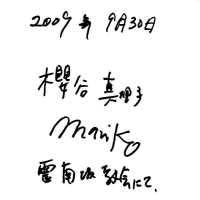 2009年 9月30日
櫻谷 真理子
Mariko
霊南坂教会にて.